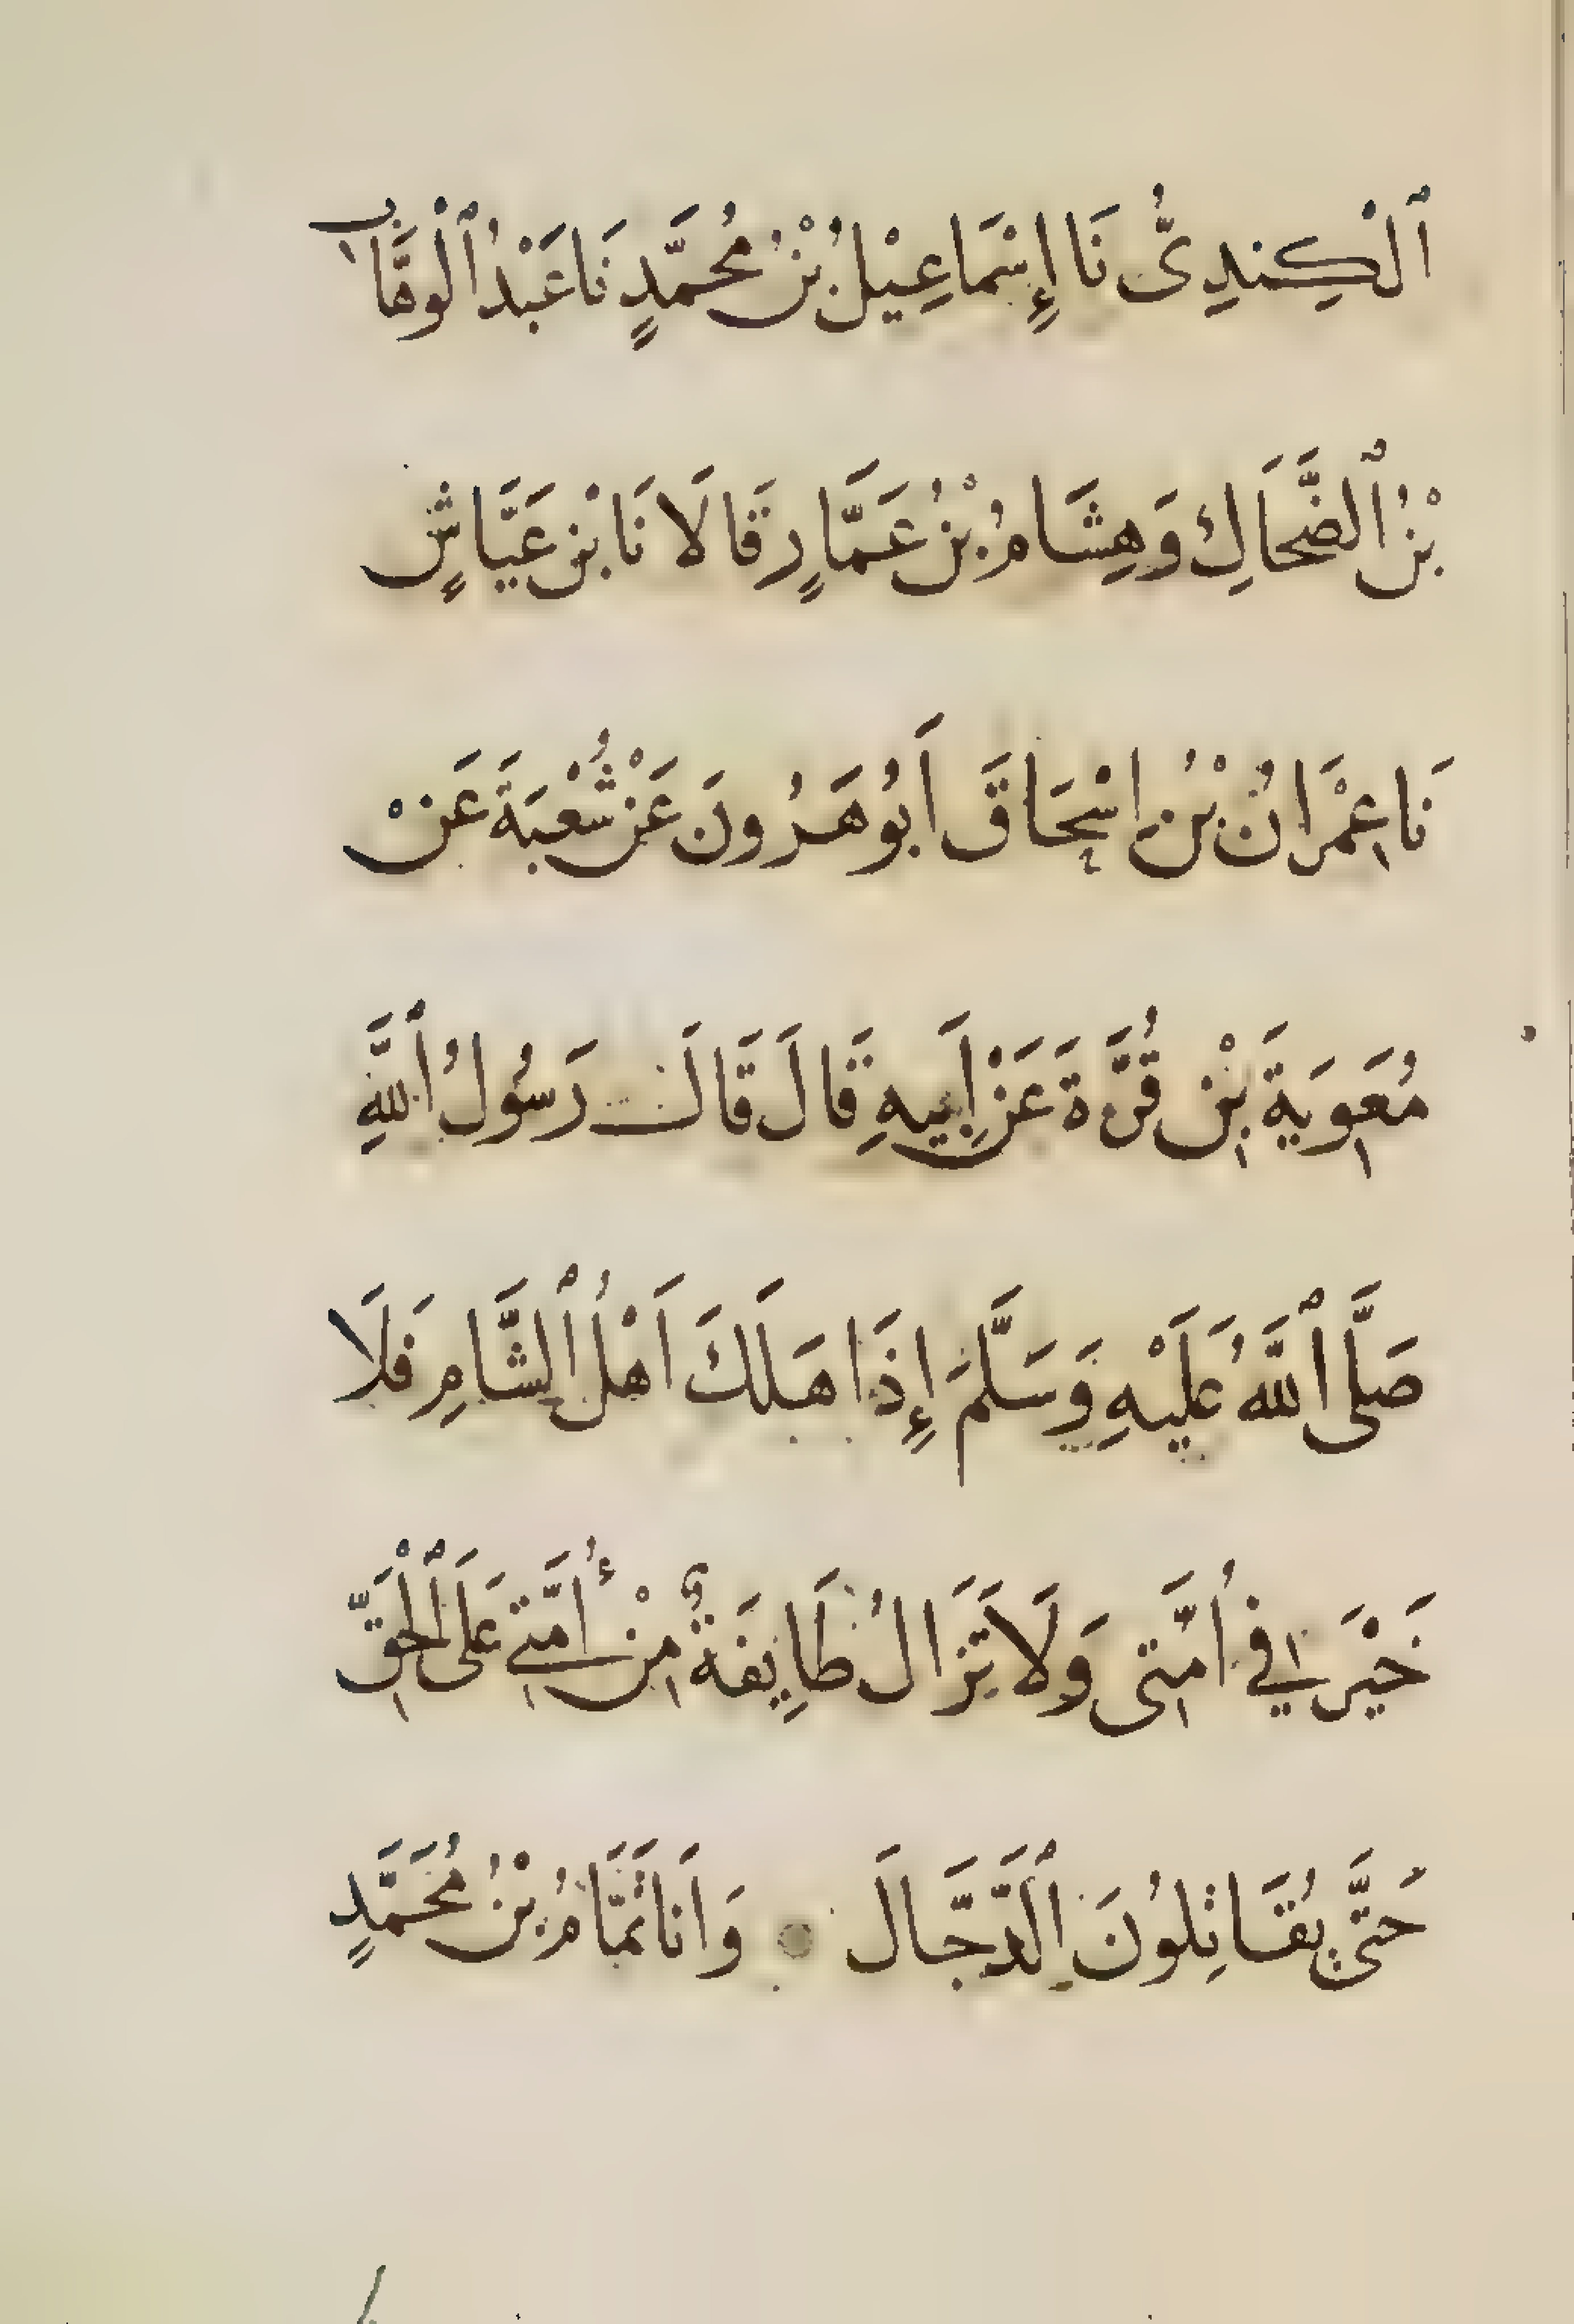 ٱلْكِندِىُّ نَا إِسْمَاعِيْلُ بْنُ مُحَمَّدٍ نَا عَبْدُ ٱلْوَهَّابِ
بْنُ ٱلضَّحَاكِ وَهِشَامُ بْنُ عَمَّارٍ قَالَا نَا بْن عَيَّاشٍ
نَا عِمْرَانُ بْنُ اسْحَاقَ اَبُو هَرُونَ عَنْ شُعْبَةَ عَنْ
مُعَوِيَةَ بْنِ قُرَّةَ عَنْ اَبِيهِ قَالَ قَالَ رَسُولُ ٱللَّهِ
صَلَّى ٱللَّهُ عَلَيْهِ وَسَلَّمَ إِذَا هَلَكَ اَهْلُ ٱلشَّامِ فَلَا
خَيْرَ فِي اُمَّتِى وَلَا تَزَالُ طَايِفَةٌ مِنْ أُمَّتِي عَلَى ٱلْحَقِّ
حَتَّى يُقَاتِلُونَ ٱلدَّجَّالَ وَاَنَا تَمَّامُ بْنُ مُحَمَّدٍ